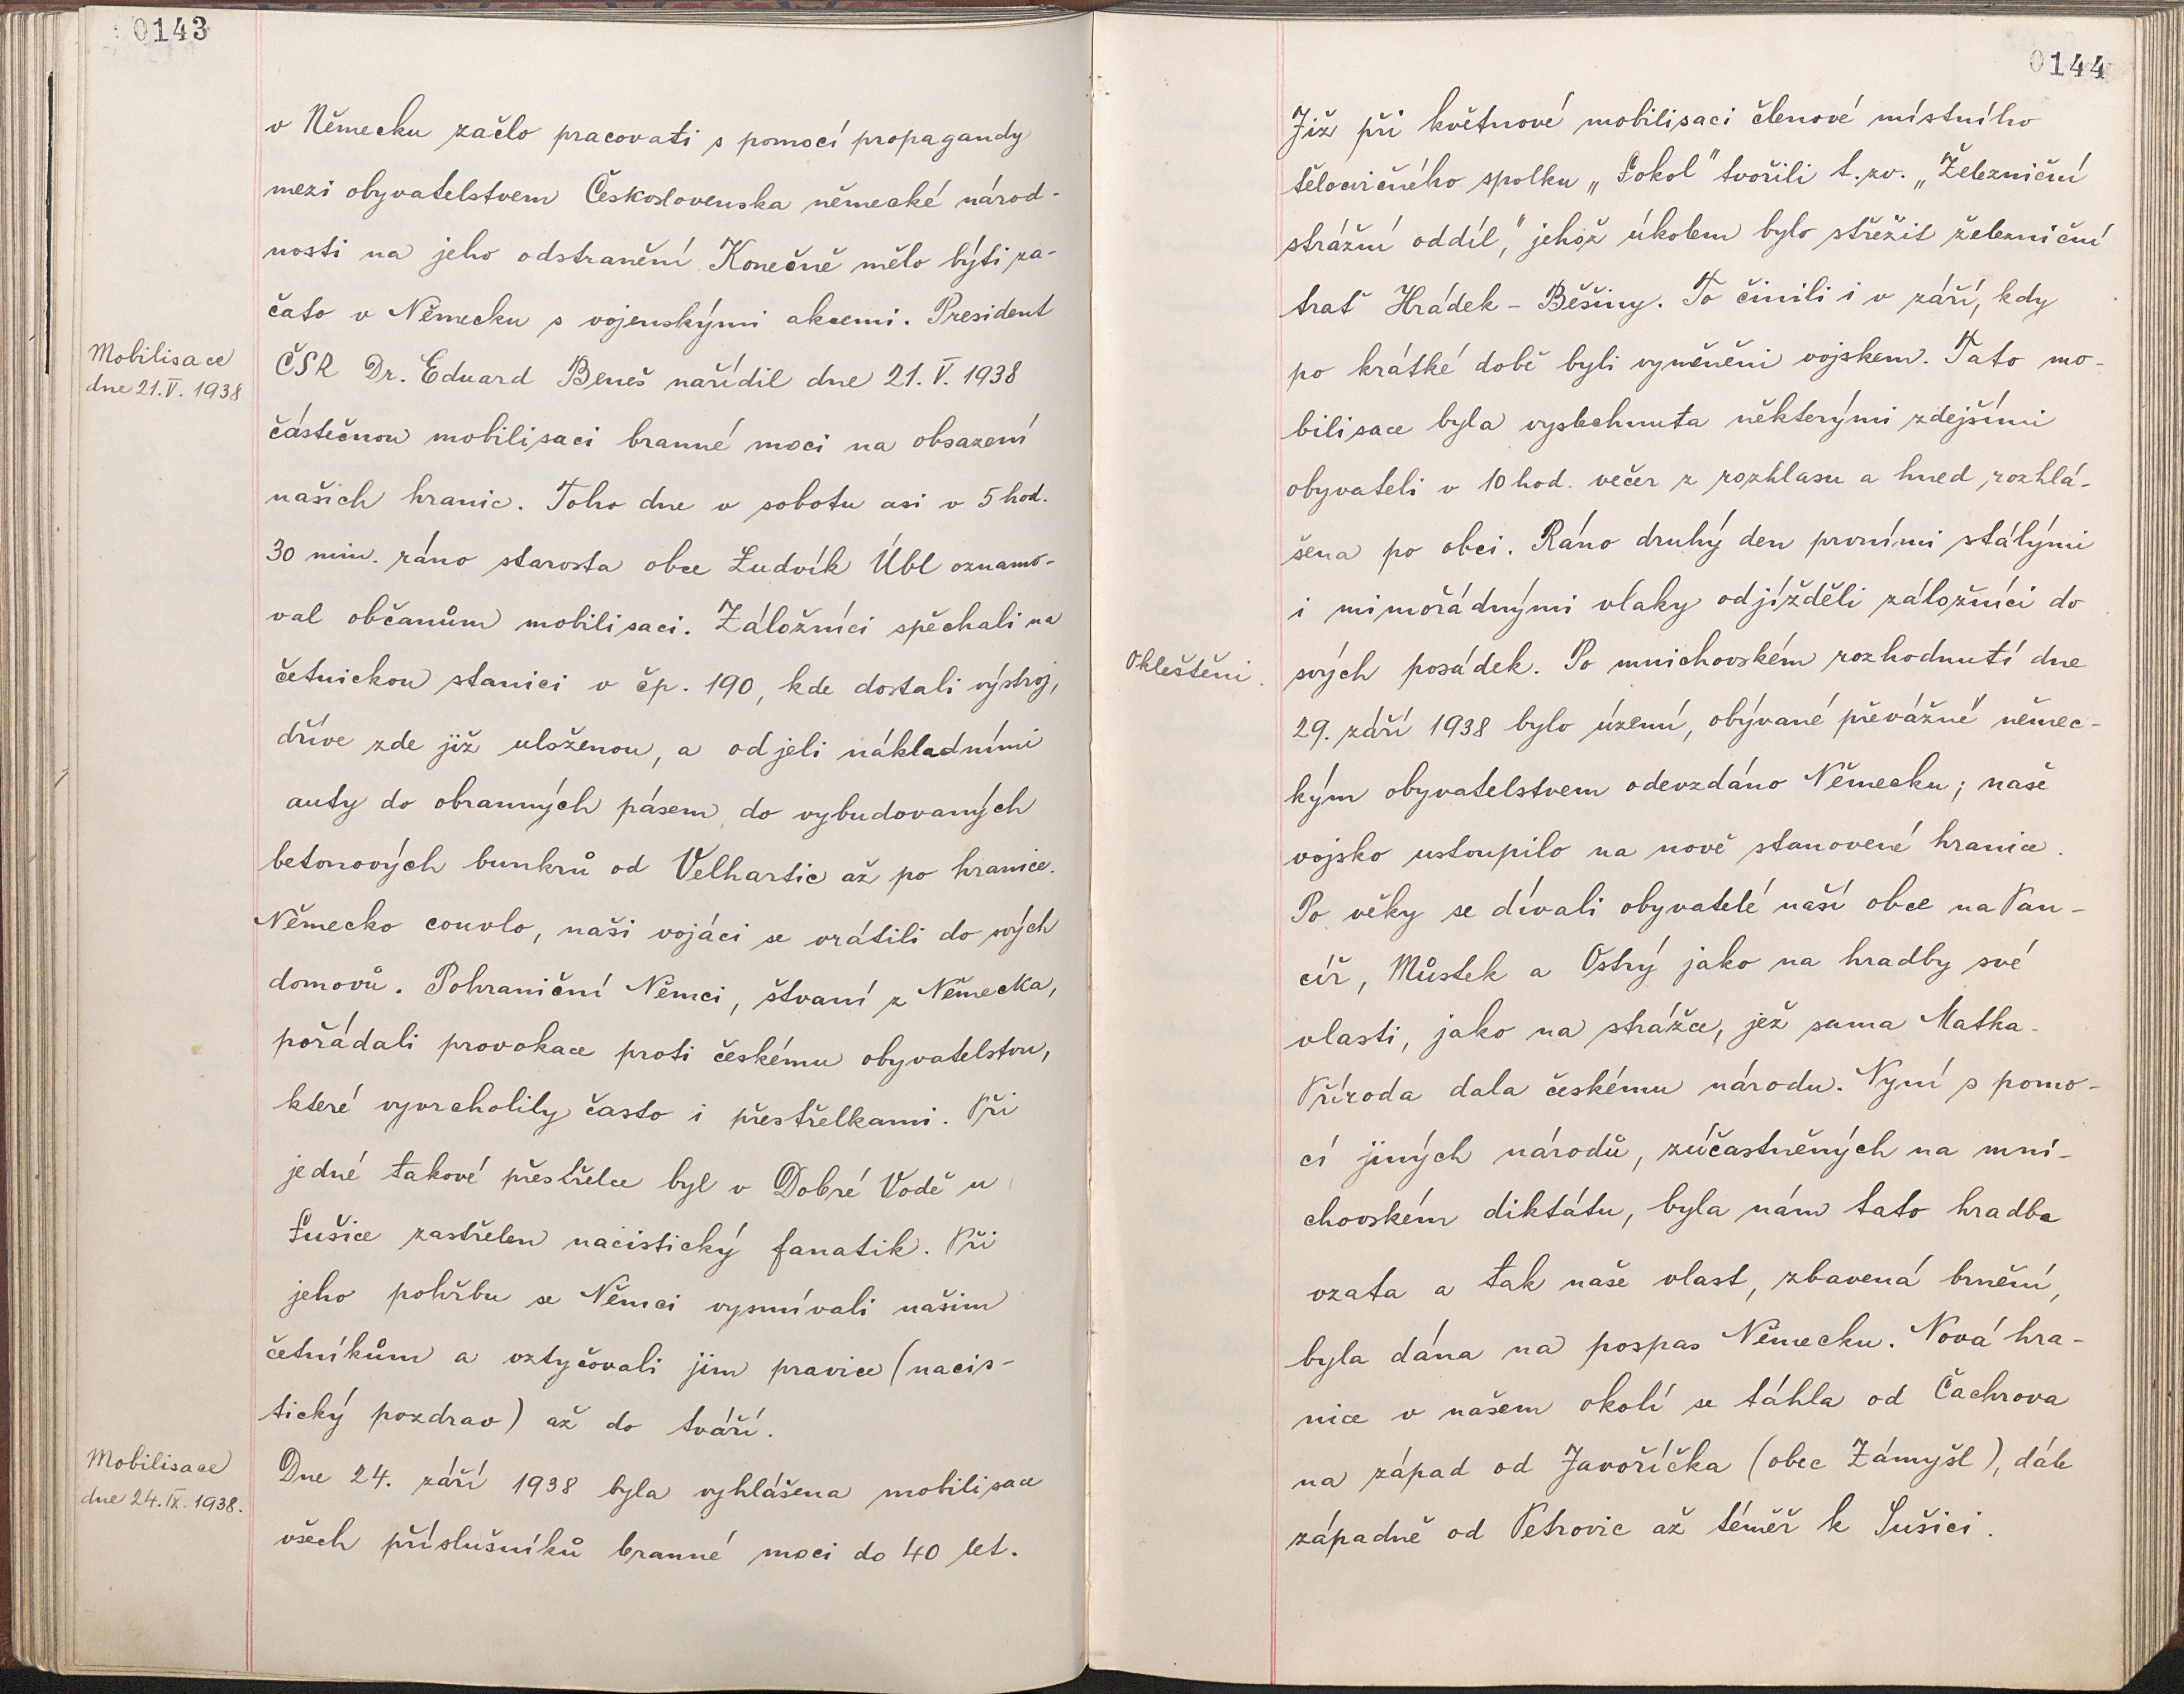 0143
v Německu začlo pracovati s pomocí propagandy
mezi obyvatelstvem Československa německé národ-
nosti na jeho odstranění Konečně mělo býti za-
čato v Německu s vojenskými akcemi. President
Mobilisace
dne 21. V. 1938
ČSR Dr. Eduard Beneš nařídil dne 21. V. 1938
částečnou mobilisaci branné moci na obsazení
našich hranic. Toho dne v sobotu asi v 5 hod.
30 min. ráno starosta obce Ludvík Úbl oznamo-
val občanům mobilisaci. Záložníci spěchali na
četnickou stanici v čp. 190, kde dostali výstroj,
dříve zde již uloženou, a odjeli nákladními
auty do obranných pásem, do vybudovaných
betonových bunkrů od Velhartic až po hranice.
Německo couvlo, naši vojáci se vrátili do svých
domovů. Pohraniční Němci, štvaní z Německa,
pořádali provokace proti českému obyvatelstvu,
které vyvrcholily často i přestřelkami. Při
jedné takové přestřelce byl v Dobré Vodě u
Sušice zastřelen nacistický fanatik. Při
jeho pohřbu se Němci vysmívali našim
četníkům a vztyčovali jim pravice (nacis-
tický pozdrav) až do tváří.
Mobilisace
dne 24. IX. 1938.
Dne 24. září 1938 byla vyhlášena mobilisace
všech příslušníků branné moci do 40 let.
0144
Již při květnové mobilisaci členové místního
tělocvičného spolku „Sokol" tvořili t. zv. „Železniční
strážní oddíl," jehož úkolem bylo střežit železniční
trať Hrádek - Běšiny. To činili i v září, kdy
po krátké době byli vyměněni vojskem. Tato mo-
bilisace byla vyslechnuta některými zdejšími
obyvateli v 10 hod. večer z rozhlasu a hned rozhlá-
šena po obci. Ráno druhý den prvními stálými
i mimořádnými vlaky odjížděli záložníci do
Okleštění.
svých posádek. Po mnichovském rozhodnutí dne
29. září 1938 bylo území, obývané převážně němec-
kým obyvatelstvem odevzdáno Německu; naše
vojsko ustoupilo na nově stanovené hranice.
Po věky se dívali obyvatelé naší obce na Pan-
cíř, Můstek a Ostrý jako na hradby své
vlasti, jako na strážce, jež sama Matka-
Příroda dala českému národu. Nyní s pomo-
cí jiných národů, zúčastněných na mni-
chovském diktátu, byla nám tato hradba
vzata a tak naše vlast, zbavená brnění,
byla dána na pospas Německu. Nová hra-
nice v našem okolí se táhla od Čachrova
na západ od Javoříčka (obec Zámyšl), dále
západně od Petrovic až téměř k Sušici.